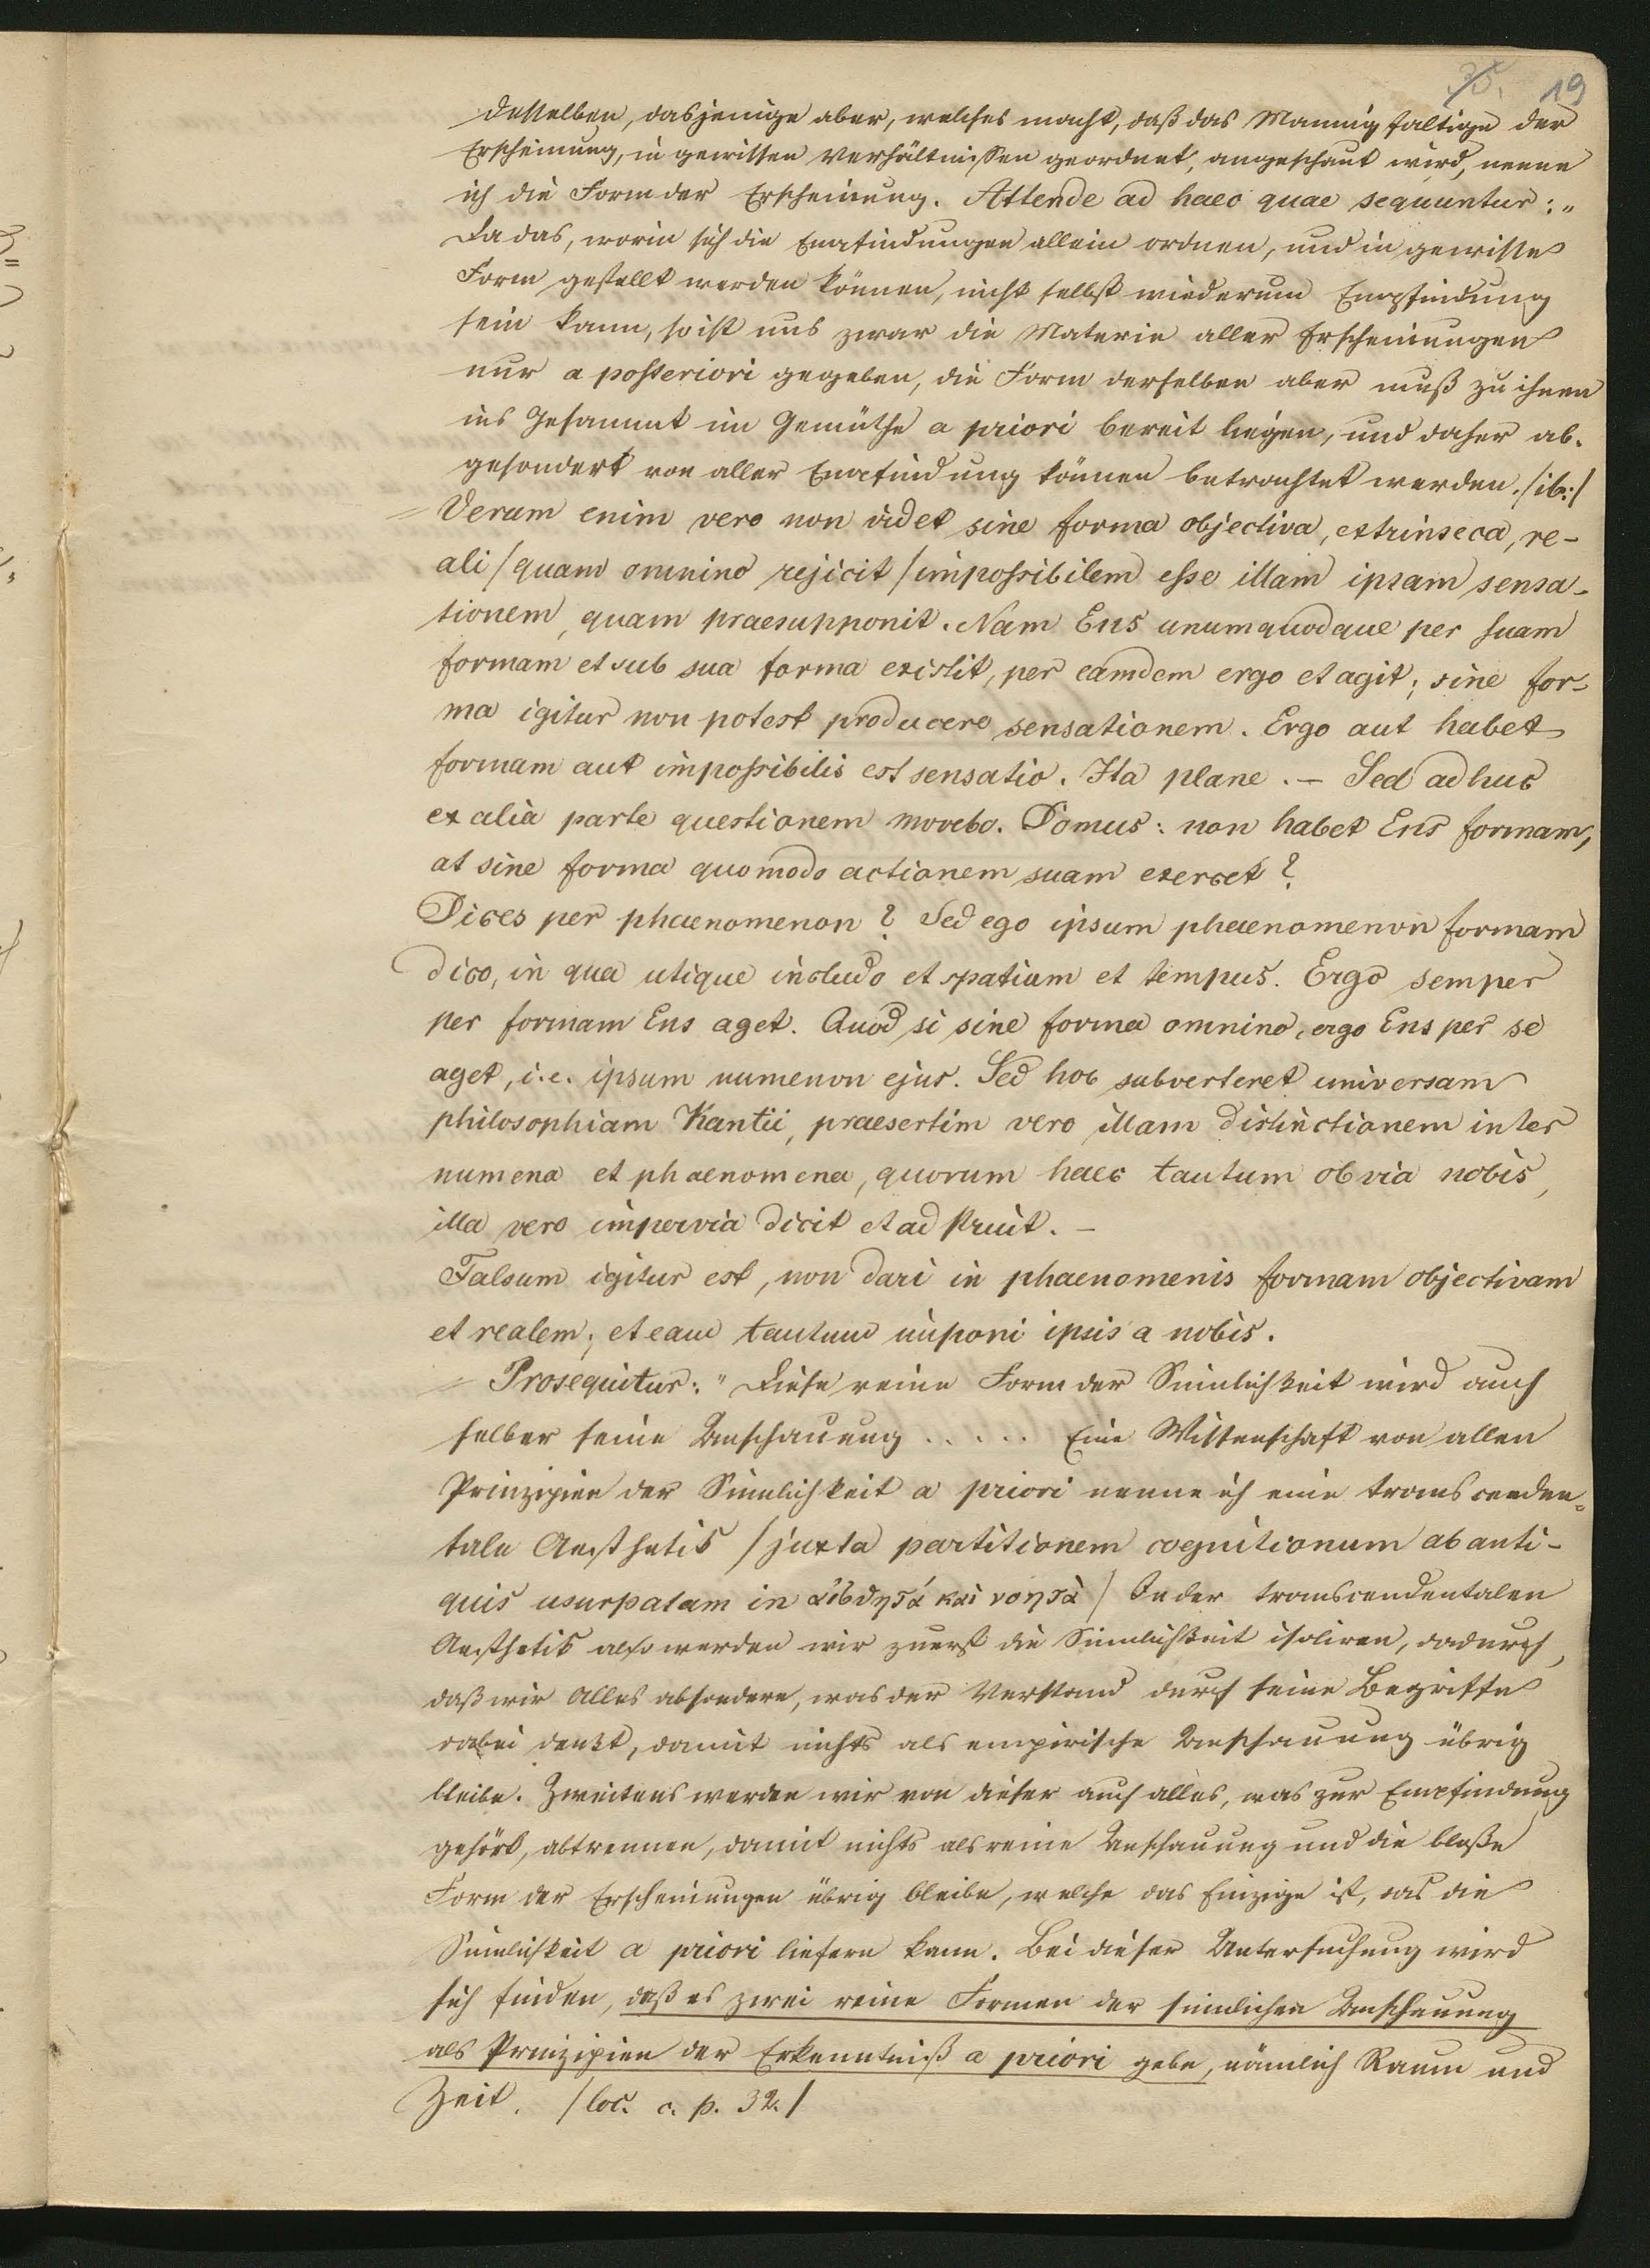 35. 19
desselben, dasjenige aber, welches macht, daß das Mannigfaltige der
Erscheinung, in gewissen Verhältnissen geordnet, angeschaut wird, nenne
ich die Form der Erscheinung. Attende ad haec quae sequuntur: „
Da das, worin sich die Empfindungen allein ordnen, und in gewisse
Form gestellt werden können, nicht selbst wiederum Empfindung
sein kann, so ist uns zwar die Materie aller Erscheinungen
nur a posteriori gegeben, die Form derselben aber muß zu ihnen
ins Gesammt im Gemüthe a priori bereit liegen, und daher ab-
gesondert von aller Empfindung können betrachtet werden. /ib:/
Verum enim vero non videt sine forma objectiva, extrinseca, re-
ali /quam omnino rejicit/ impossibilem esse illam ipsam sensa-
tionem, quam praesupponit. Nam Ens unumquodque per suam
formam et sub sua forma existit, per eamdem ergo et agit; sine for-
ma igitur non potest producere sensationem. Ergo aut habet
formam aut impossibilis est sensatio. Ita plane. – Sed adhuc
ex alia parte questionem movebo. Domus: non habet Ens formam,
at sine forma quomodo actionem suam exercet?
Dices per phaenomenon? Sed ego ipsum phaenomenon formam
dico, in qua utique includo et spatium et tempus. Ergo semper
per formam Ens aget. Quod si sine forma omnino, ergo Ens per se
aget, i.e. ipsum numenon ejus. Sed hoc subverteret universam
philosophiam Kantii, praesertim vero illam distinctionem inter
numena et phaenomena, quorum haec tantum obvia nobis,
illa vero impervia dicit et adstruit. –
Falsum igitur est, non dari in phaenomenis formam objectivam
et realem; et eam tantum imponi ipsis a nobis.
Prosequitur: „ Diese reine Form der Sinnlichkeit wird auch
selber seine Anschauung . . . . . Eine Wissenschaft von allen
Prinzipien der Sinnlichkeit a priori nenne ich eine transcenden-
tale Aesthetik /juxta partitionem cognitionum ab anti-
quis usurpatam in αἰσθητά καὶ νοητὰ/ In der transcendentalen
Aesthetik also werden wir zuerst die Sinnlichkeit isoliren, dadurch,
daß wir Alles absondern, was der Verstand durch seine Begriffe
dabei denkt, damit nichts als empirische Anschauung übrig
bleibe. Zweitens werden wir von dieser auch alles, was zur Empfindung
gehört, abtrennen, damit nichts als reine Anschauung und die bloße
Form der Erscheinungen übrig bleibe, welche das Einzige ist, das die
Sinnlichkeit a priori liefern kann. Bei dieser Untersuchung wird
sich finden, daß es zwei reine Formen der sinnlichen Anschauung
als Prinzipien der Erkenntniß a priori gebe, nämlich Raum und
Zeit. /loc. c. p. 32./